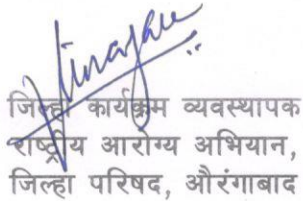 जिल्हा कार्यक्रम व्यवस्थापक
राष्ट्रीय आरोग्य अभियान,
जिल्हा परिषद, औरंगाबाद